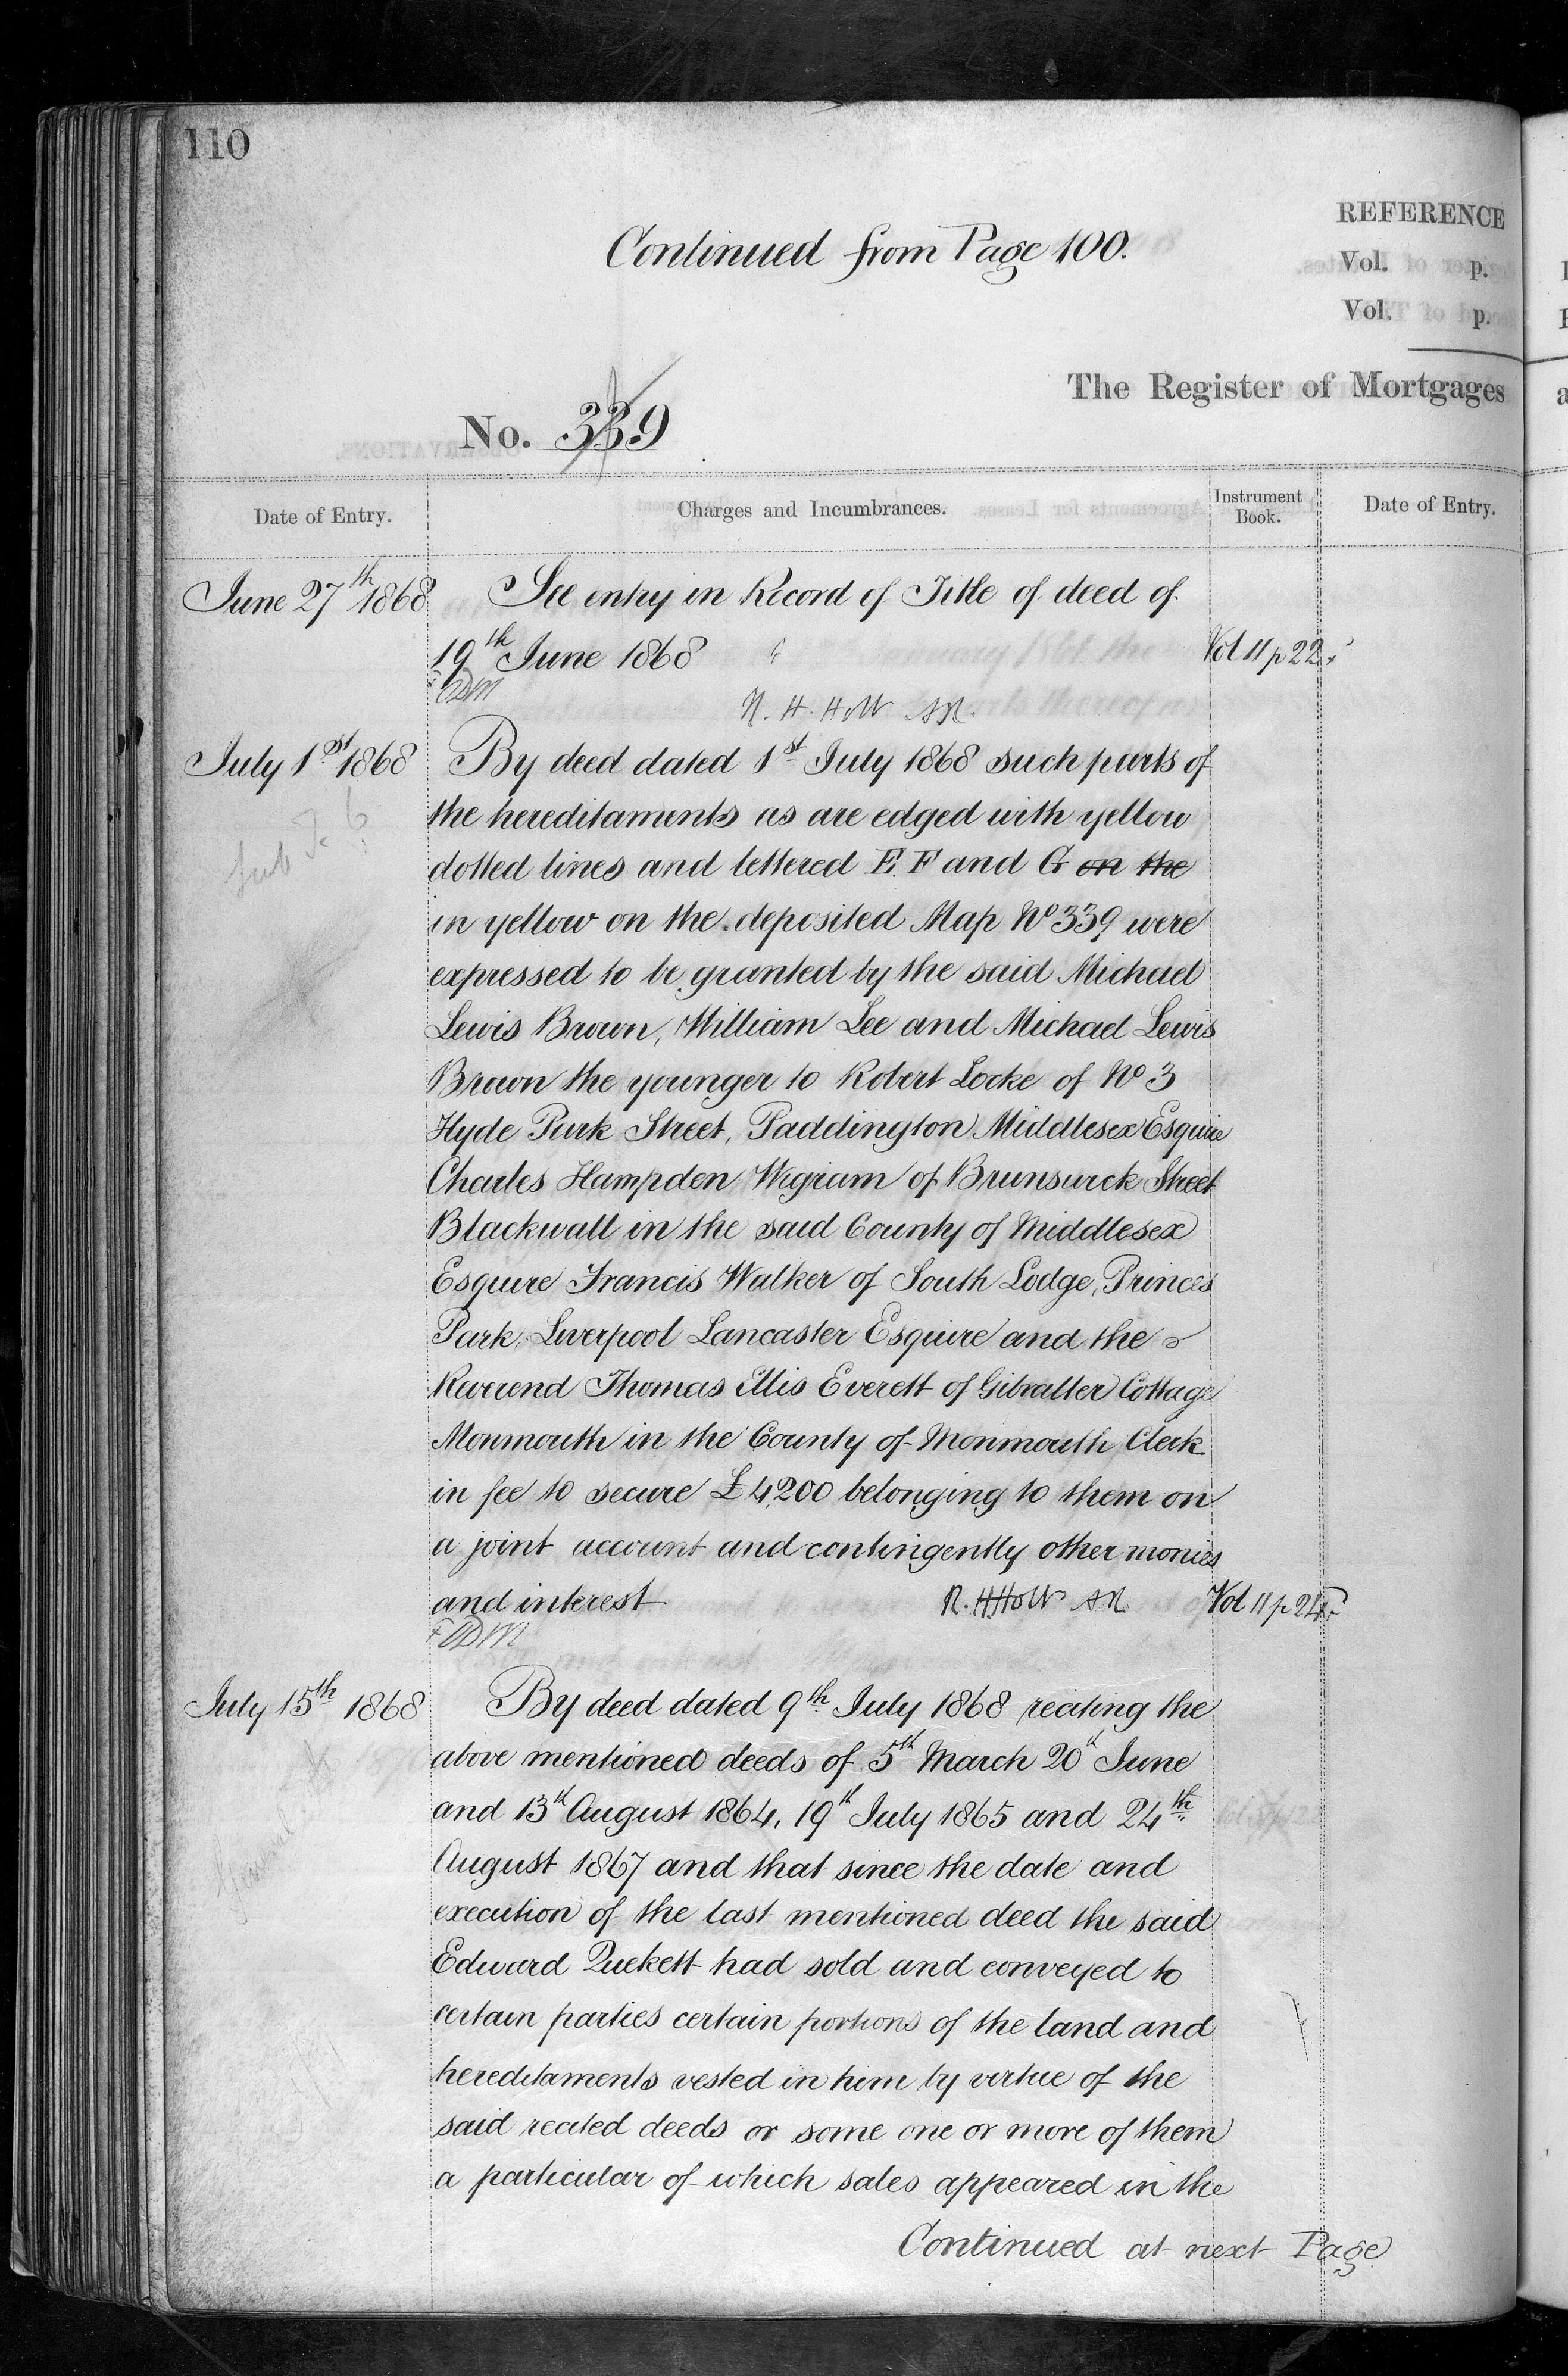 110
Continued from Page 100.
REFERENCE
Vol. p.
Vol. p.
The Register of Mortgages
No. 339
Date of Entry.
Charges and Incumbrances.
Instrument Book.
Date of Entry.
June 27th 1868
See entry in Record of Title of deed of
19th June 1868
Vol 11 p 22
R. H. Holt AR.
July 1st 1868
By deed dated 1st July 1868 such parts of
the hereditaments as are edged with yellow
dotted lines and lettered E. F and G on the
in yellow on the deposited Map No 339 were
expressed to be granted by the said Michael
Lewis Brown, William Lee and Michael Lewis
Brown the younger to Robert Locke of No 3
Hyde Park Street, Paddington Middlesex Esquire
Charles Hampden Wigram of Brunswick Street
Blackwall in the said County of Middlesex
Esquire Francis Walker of South Lodge, Princes
Park, Liverpool Lancaster Esquire and the
Reverend Thomas Ellis Everett of Gibralter Cottage
Monmouth in the County of Monmouth Clerk
in fee to secure £4,200 belonging to them on
a joint account and contingently other monies
and interest
R. H Holt AR
Vol 11 p 24
July 15th 1868
By deed dated 9th July 1868 reciting the
above mentioned deeds of 5th March 20th June
and 13th August 1864, 19th July 1865 and 24th
August 1867 and that since the date and
execution of the last mentioned deed the said
Edward Puckett had sold and conveyed to
certain parties certain portions of the land and
hereditaments vested in him by virtue of the
said recited deeds or some one or more of them
a particular of which sales appeared in the
Continued at next Page